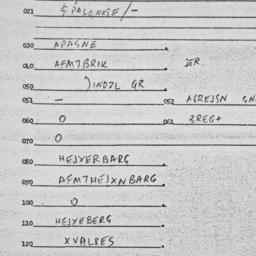 021 SPALONKIE/-
030 APASNE
040 AFMTBRIK IR
050 )INDZL GR
051 - 052 AGREJSN GN
060 0 061 BREG+
070 0
080 HEJXERBARG
090 AFMTHEJXNBARG
100 0
110 HEJXEBERG
120 XVALBES